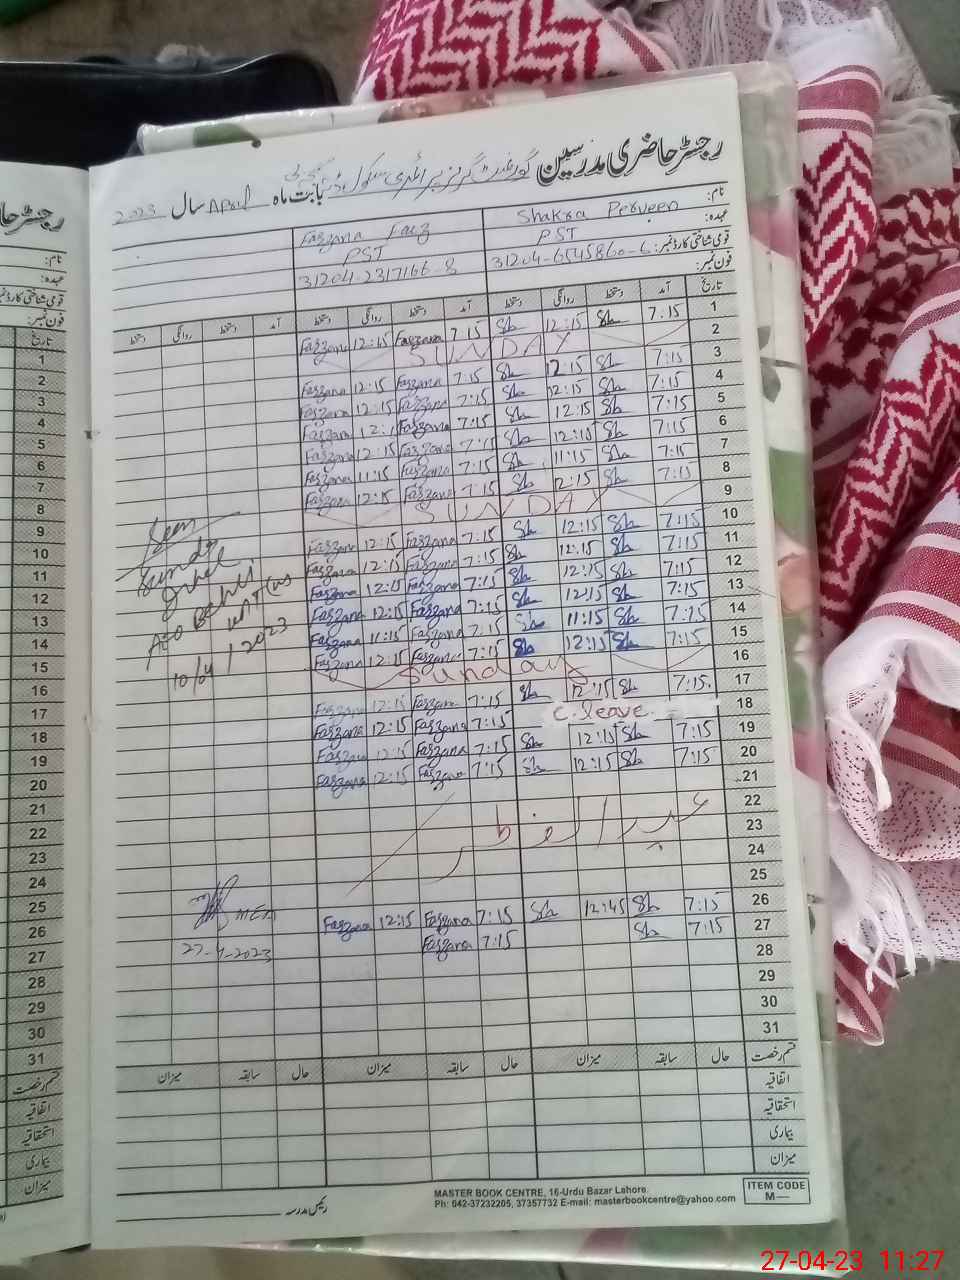 رجسٹر حاضری مدرسین گورنمنٹ گرلز پرائمری سکول
بابت ماہ April سال 2023
نام: Shakra Perveen Farzana Faiz
عہدہ: PST PST
قومی شناختی کارڈ نمبر: 31204-6545860-6 31204-2317166-8
فون نمبر:
تاریخ آمد دستخط روانگی دستخط آمد دستخط روانگی دستخط آمد دستخط روانگی دستخط
1 7:15 Sh 12:15 Sh 7:15 Farzana 12:15 Farzana
2 SUNDAY
3 7:15 Sh 12:15 Sh 7:15 Farzana 12:15 Farzana
4 7:15 Sh 12:15 Sh 7:15 Farzana 12:15 Farzana
5 7:15 Sh 12:15 Sh 7:15 Farzana 12:1 Farzana
6 7:15 Sh 12:15 Sh 7:15 Farzana 12:15 Farzana
7 7:15 Sh 11:15 Sh 7:15 Farzana 11:15 Farzana
8 7:15 Sh 12:15 Sh 7:15 Farzana 12:15 Farzana
9 SUNDAY
10 7:15 Sh 12:15 Sh 7:15 Farzana 12:15 Farzana
11 7:15 Sh 12:15 Sh 7:15 Farzana 12:15 Farzana
12 7:15 Sh 12:15 Sh 7:15 Farzana 12:15 Farzana
13 7:15 Sh 12:15 Sh 7:15 Farzana 12:15 Farzana
14 7:15 Sh 11:15 Sh 7:15 Farzana 11:15 Farzana
15 7:15 Sh 12:15 Sh 7:15 Farzana 12:15 Farzana
16 Sunday
17 7:15 Sh 12:15 Sh 7:15 Farzana 12:15 Farzana
18 C.leave 7:15 Farzana 12:15 Farzana
19 7:15 Sh 12:15 Sh 7:15 Farzana 12:15 Farzana
20 7:15 Sh 12:15 Sh 7:15 Farzana 12:15 Farzana
21
22
عید الفطر
23
24
25
26 7:15 Sh 12:45 Sh 7:15 Farzana 12:15 Farzana
27 7:15 Sh 7:15 Farzana
28
29
30
31
Seen
10/04/2023
MEA
27-4-2023
قسم رخصت حال سابقہ میزان حال سابقہ میزان حال سابقہ میزان
اتفاقیہ
استحقاقیہ
بیماری
میزان
رئیس مدرسہ
MASTER BOOK CENTRE, 16-Urdu Bazar Lahore.
Ph: 042-37232205, 37357732 E-mail: masterbookcentre@yahoo.com
ITEM CODE
M—
رجسٹر حا
نام:
عہدہ:
قومی شناختی کارڈ نمبر
فون نمبر:
تاریخ
1
2
3
4
5
6
7
8
9
10
11
12
13
14
15
16
17
18
19
20
21
22
23
24
25
26
27
28
29
30
31
قسم رخصت
اتفاقیہ
استحقاقیہ
بیماری
میزان
27-04-23 11:27